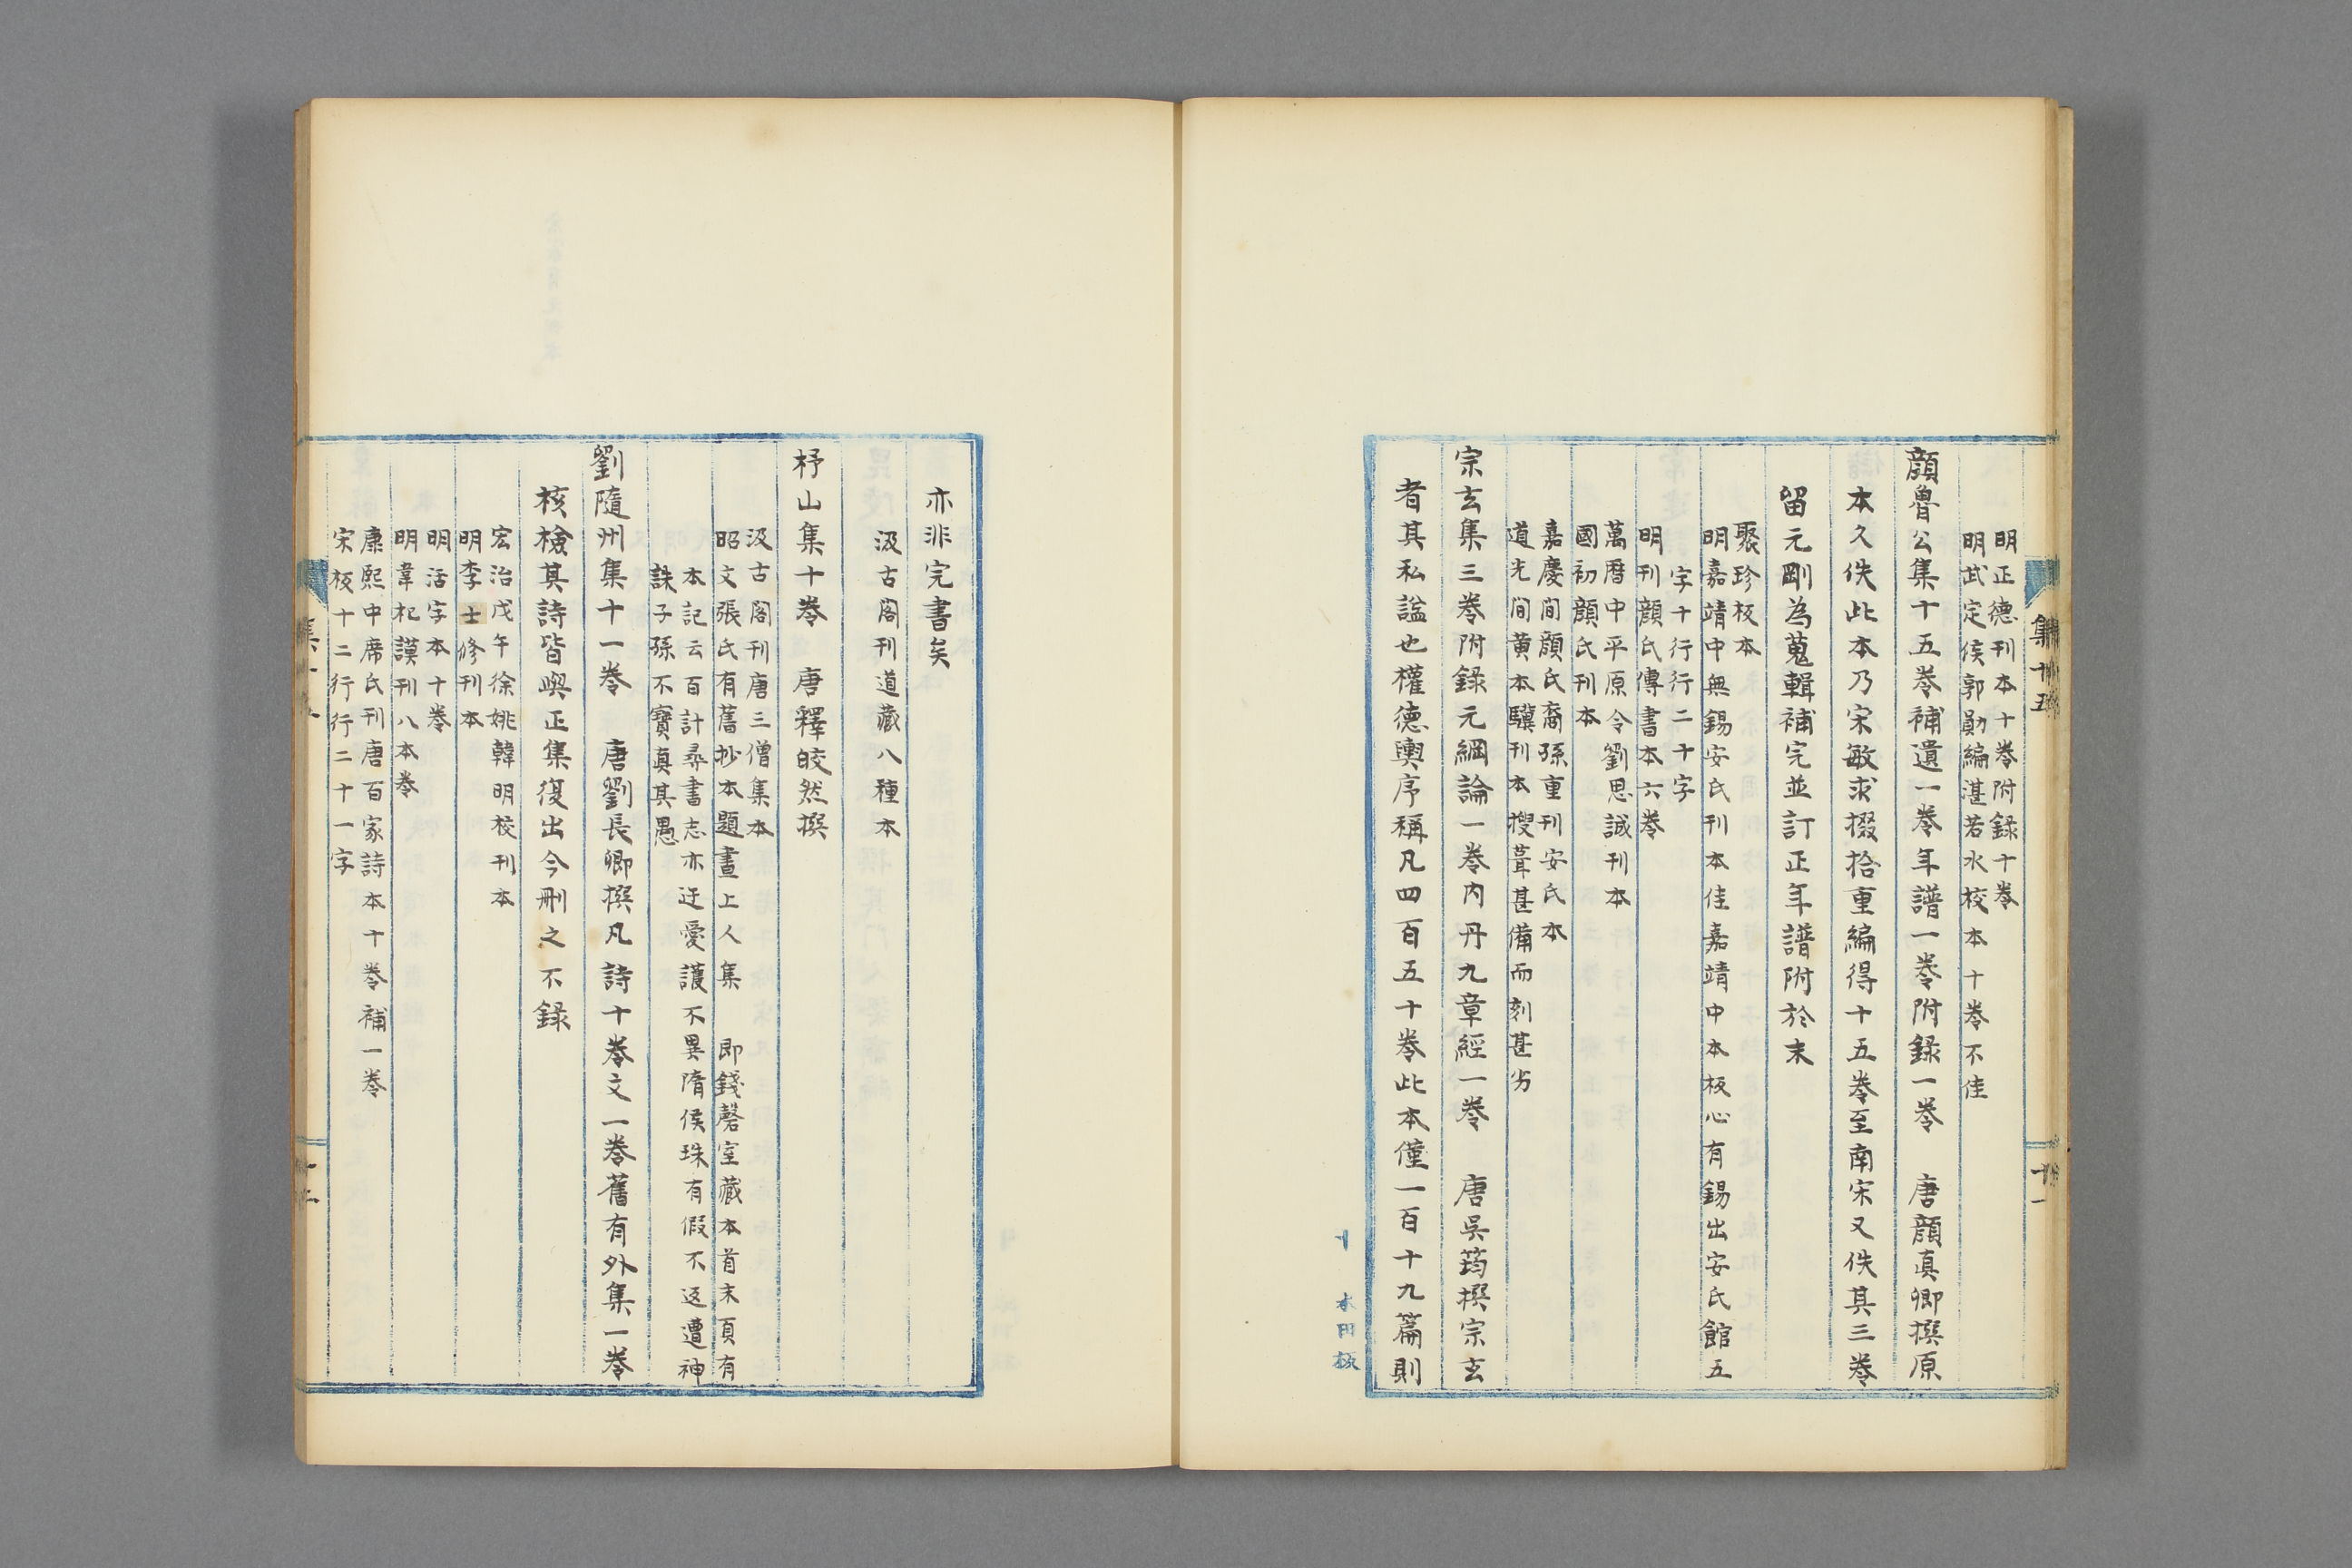 集十五
十一
明正德刊本十卷附錄十卷
明武定侯郭勛編湛若水校本十卷不佳
顏魯公集十五卷補遺一卷年譜一卷附錄一卷　唐顏真卿撰原
本久佚此本乃宋敏求掇拾重編得十五卷至南宋又佚其三卷
留元剛為蒐輯補完並訂正年譜附於末
聚珍板本
明嘉靖中無錫安氏刊本佳嘉靖中本板心有錫出安氏館五
字十行行二十字
明刊顏氏傳書本六卷
萬曆中平原令劉思誠刊本
國初顏氏刊本
嘉慶間顏氏裔孫重刊安氏本
道光間黃本驥刊本搜葺甚備而刻甚劣
宗玄集三卷附錄元綱論一卷內丹九章經一卷　唐吳筠撰宗玄
者其私謚也權德輿序稱凡四百五十卷此本僅一百十九篇則
亦非完書矣
汲古閣刊道藏八種本
杼山集十卷　唐釋皎然撰
汲古閣刊唐三僧集本
昭文張氏有舊抄本題晝上人集　即錢磬室藏本首末頁有
本記云百計尋書志亦迂愛護不異隋侯珠有假不返遭神
誅子孫不寶真其愚
劉隨州集十一卷　唐劉長卿撰凡詩十卷文一卷舊有外集一卷
核檢其詩皆與正集復出今刪之不錄
宏治戊午徐姚韓明校刊本
明李士修刊本
明活字本十卷
明韋杞謨刊八本卷
康熙中席氏刊唐百家詩本十卷補一卷
宋板十二行行二十一字